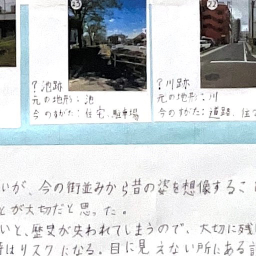 23
?池跡
元の地形:池
今のすがた:住宅、駐車場
?川跡
元の地形:川
今のすがた:道路、住
いが、今の街並みから昔の姿を想像するこ
とが大切だと思った。
いと、歴史が失われてしまうので、大切に残
はリスクになる。目に見えない所にある